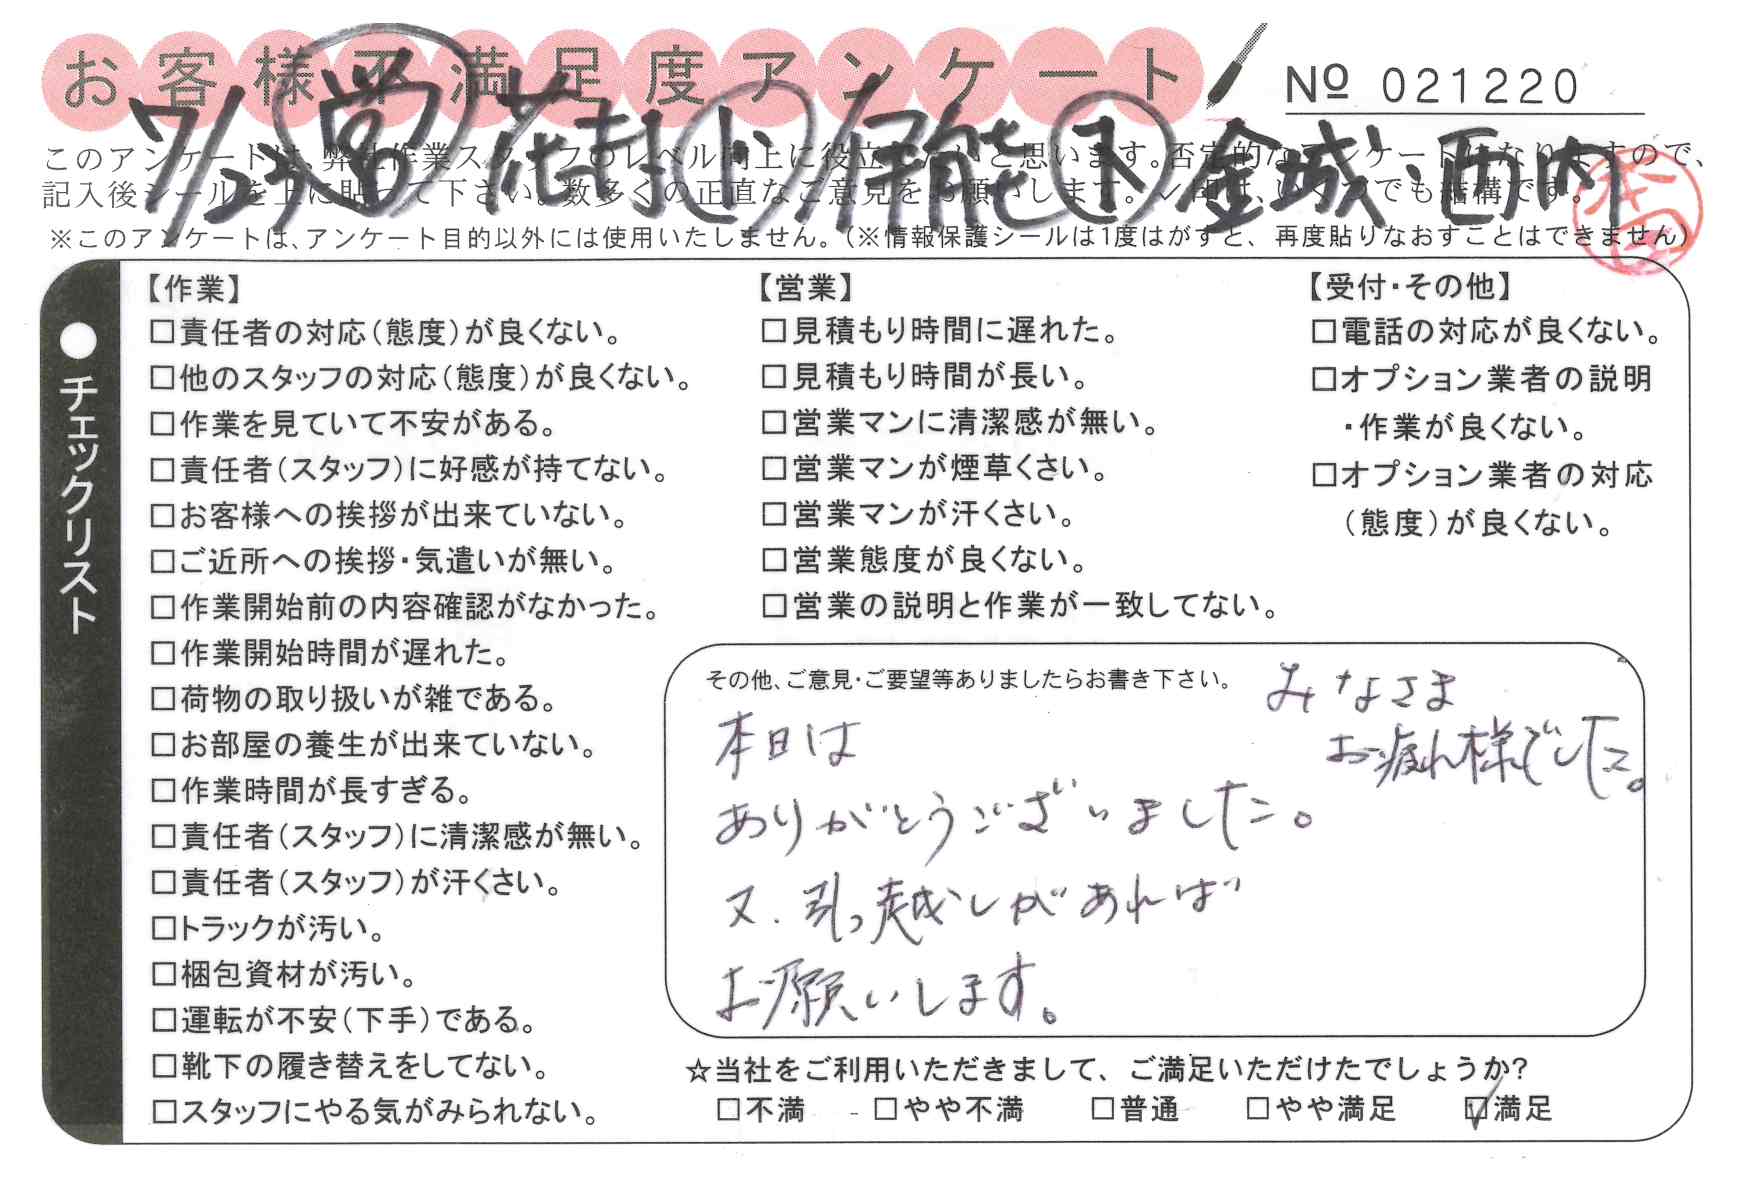 お客様不満足度アンケート
№ 021220
7/23 営 花村 ト 伊能 下 金城、西内
このアンケートは、弊社作業スタッフのレベル向上に役立てたいと思います。否定的なアンケートになりますので、
記入後シールを上に貼って下さい。数多くの正直なご意見をお願いします。✓印は、いくつでも結構です。
※このアンケートは、アンケート目的以外には使用いたしません。(※情報保護シールは1度はがすと、再度貼りなおすことはできません)
●チェックリスト
【作業】
□責任者の対応(態度)が良くない。
□他のスタッフの対応(態度)が良くない。
□作業を見ていて不安がある。
□責任者(スタッフ)に好感が持てない。
□お客様への挨拶が出来ていない。
□ご近所への挨拶・気遣いが無い。
□作業開始前の内容確認がなかった。
□作業開始時間が遅れた。
□荷物の取り扱いが雑である。
□お部屋の養生が出来ていない。
□作業時間が長すぎる。
□責任者(スタッフ)に清潔感が無い。
□責任者(スタッフ)が汗くさい。
□トラックが汚い。
□梱包資材が汚い。
□運転が不安(下手)である。
□靴下の履き替えをしてない。
□スタッフにやる気がみられない。
【営業】
□見積もり時間に遅れた。
□見積もり時間が長い。
□営業マンに清潔感が無い。
□営業マンが煙草くさい。
□営業マンが汗くさい。
□営業態度が良くない。
□営業の説明と作業が一致してない。
【受付・その他】
□電話の対応が良くない。
□オプション業者の説明
・作業が良くない。
□オプション業者の対応
(態度)が良くない。
その他、ご意見・ご要望等ありましたらお書き下さい。
本日は
ありがとうございました。
又、引っ越しがあれば
お願いします。
みなさま
お疲れ様でした。
☆当社をご利用いただきまして、ご満足いただけたでしょうか?
□不満 □やや不満 □普通 □やや満足 ☑満足